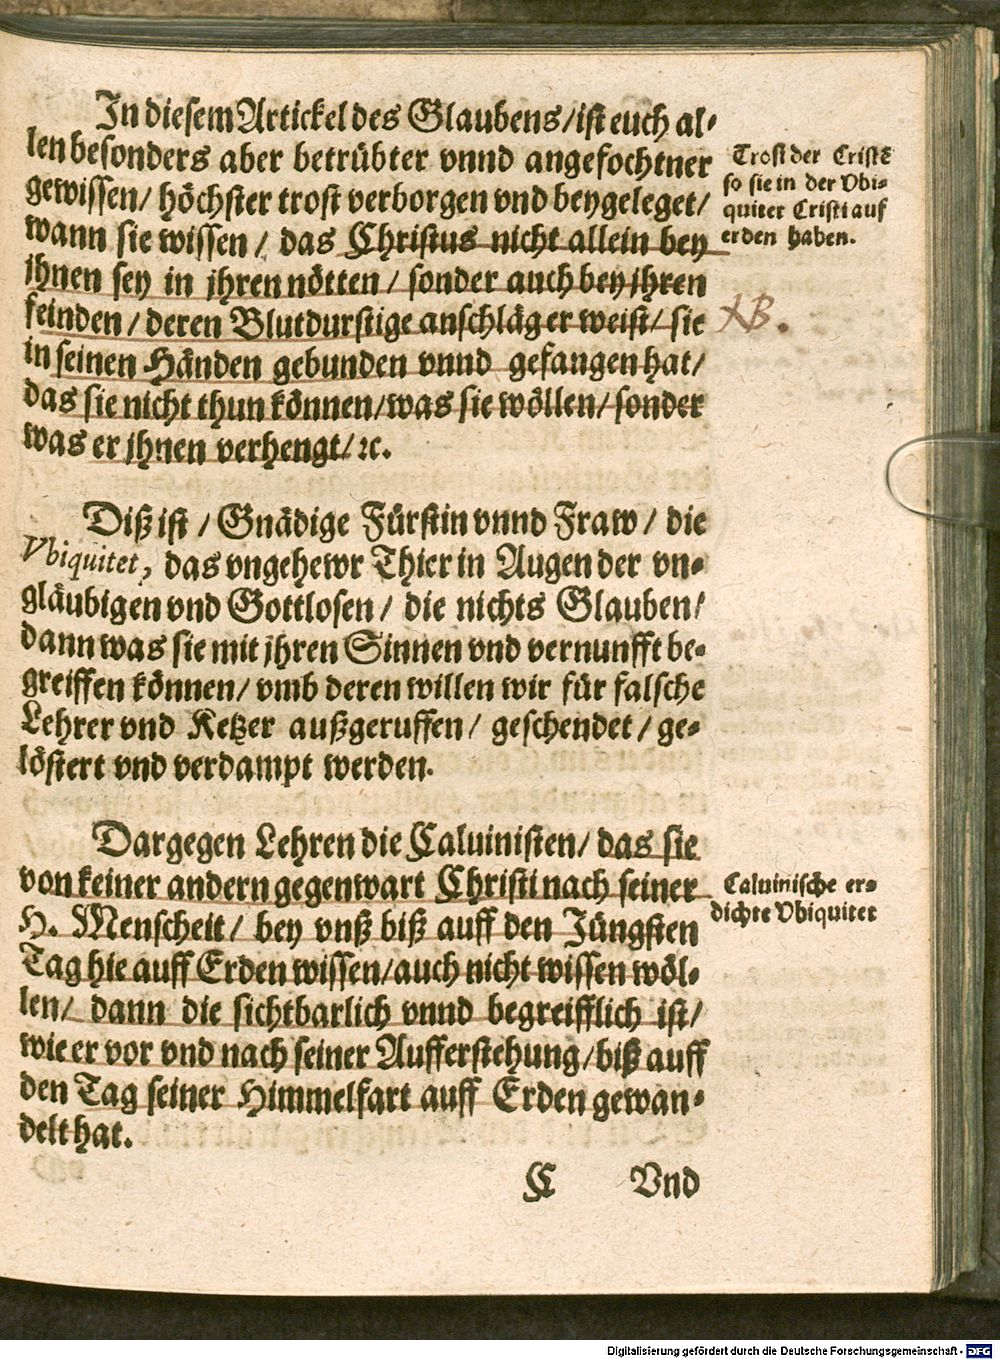 In diesem Artickel des Glaubens/ist euch al-
len besonders aber betrübter vnnd angefochtner
gewissen/ höchster trost verborgen vnd beygeleget/
wann sie wissen / das Christus nicht allein bey
jhnen sey in jhren nötten / sonder auch bey jhren
feinden / deren Blutdurstige anschläg er weist/ sie
in seinen Händen gebunden vnnd gefangen hat/
das sie nicht thun können/was sie wöllen/ sonder
was er jhnen verhengt/ ꝛc.
Trost der Cristē
so sie in der Vbi-
quitet Cristi auf
erden haben.
NB.
Diß ist / Gnädige Fürstin vnnd Fraw / die
Vbiquitet, das vngehewr Thier in Augen der vn-
gläubigen vnd Gottlosen / die nichts Glauben/
dann was sie mit jhren Sinnen vnd vernunfft be-
greiffen können/ vmb deren willen wir für falsche
Lehrer vnd Ketzer außgeruffen / geschendet / ge-
löstert vnd verdampt werden.
Dargegen Lehren die Caluinisten/ das sie
von keiner andern gegenwart Christi nach seiner
H. Menscheit/ bey vnß biß auff den Jüngsten
Tag hie auff Erden wissen/auch nicht wissen wöl-
len/ dann die sichtbarlich vnnd begreifflich ist/
wie er vor vnd nach seiner Aufferstehung/biß auff
den Tag seiner Himmelfart auff Erden gewan-
delt hat.
Caluinische er-
dichte Vbiquitet
C Vnd
Digitalisierung gefördert durch die Deutsche Forschungsgemeinschaft - DFG